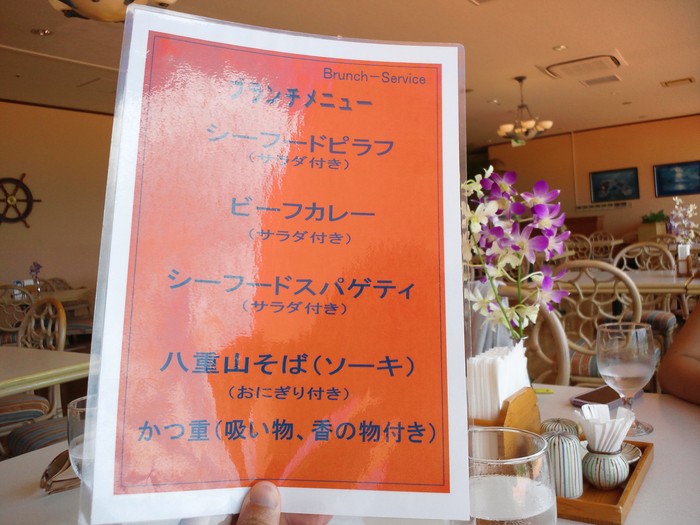 Brunch−Service
ブランチメニュー
シーフードピラフ
(サラダ付き)
ビーフカレー
(サラダ付き)
シーフードスパゲティ
(サラダ付き)
八重山そば(ソーキ)
(おにぎり付き)
かつ重(吸い物、香の物付き)